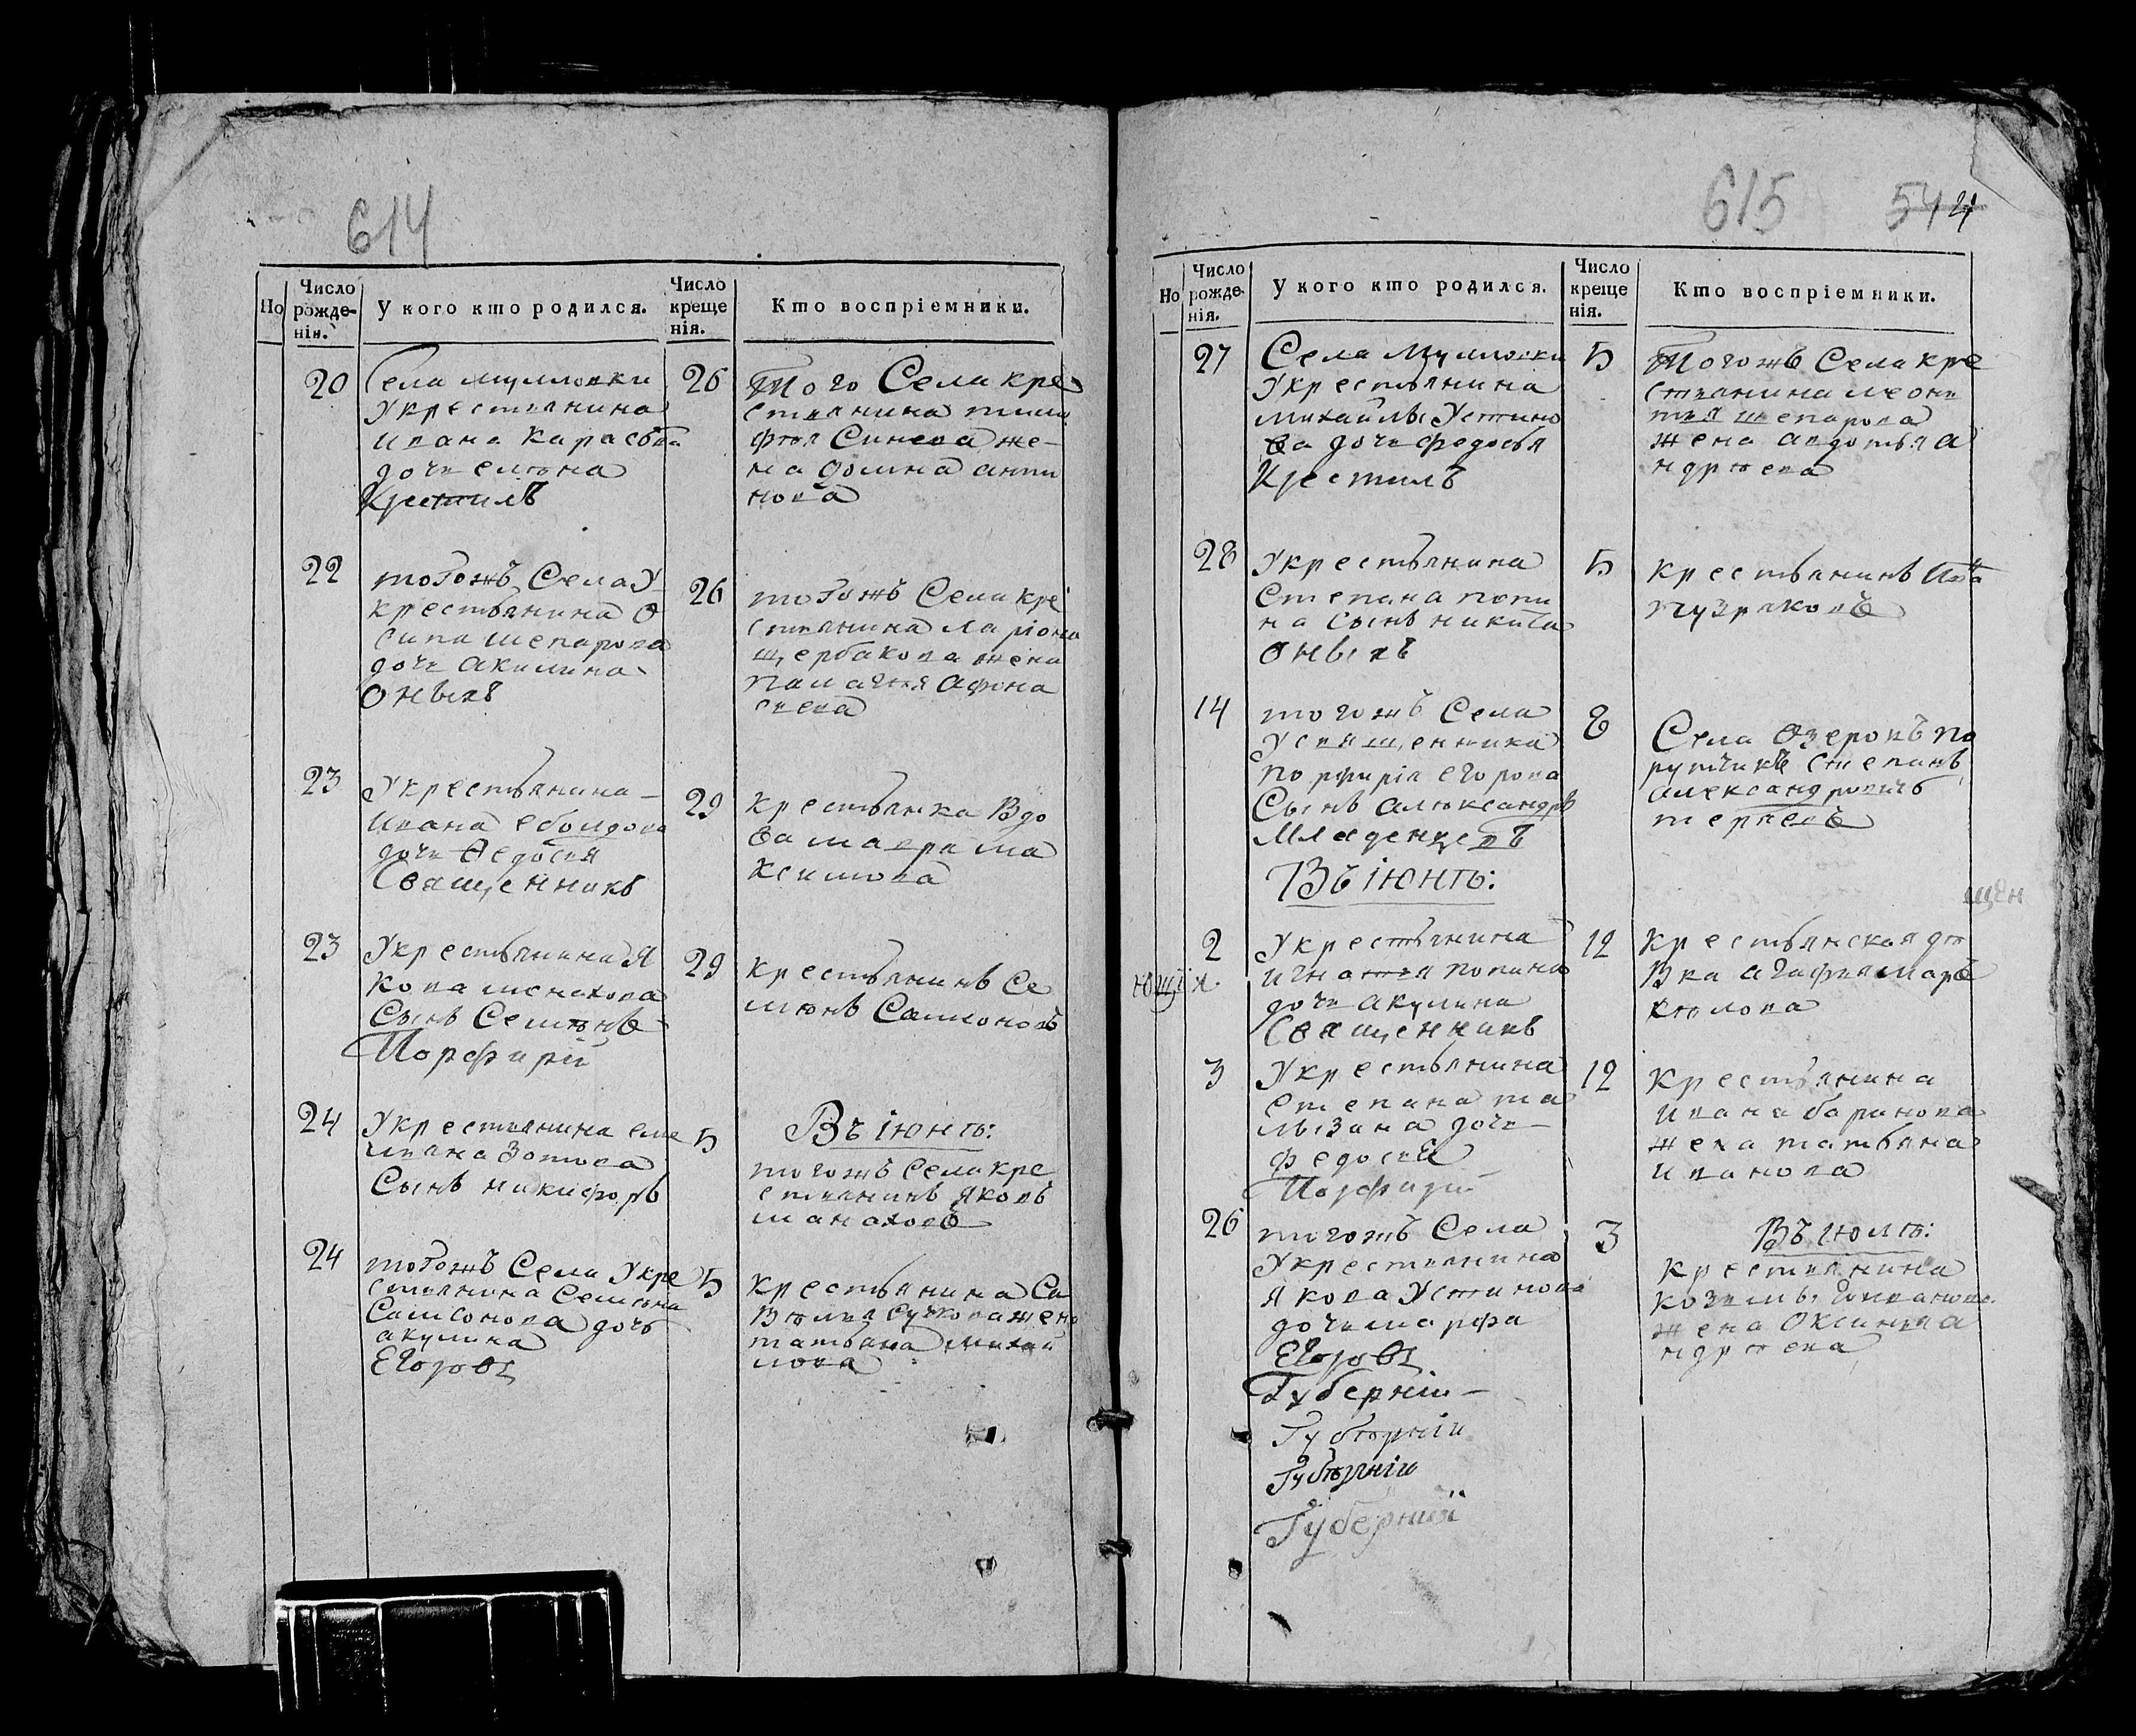 614
Но
Число рожденія.
У кого кто родился.
Число крещенія.
Кто воспріемники.
20
Села Мулловки
У крестьянина
Ивана Карасева
дочь елена
Крестилъ
26
Того Села кре
стьянина тимо
фея Синева же-
на домна анти
пова
22
тогожъ Села У
крестьянина О
сипа шепарова
дочь акилина
оныхъ
26
тогожъ Села кре
стьянина лариона
щербакова жена
палагея афона
сиева
23
У крестьянина
Ивана
дочь Ѳедосия
Священникъ
29
крестьянка Вдо
ва мавра ма
ксимова
23
У крестьянина Я
кова монахова
Сынъ Семенъ
Порфирій
29
крестьянинъ Се
менъ Самсоновъ
24
У крестьянина еме
льяна Зотова
Сынъ никифоръ
5
Въ іюнѣ:
тогожъ Села кре
стьянинъ Яковъ
манаховъ
24
тогожъ Села У кре
стьянина Семена
Самсонова дочь
акулина
Егоровъ
5
крестьянина Са
велья Сучкова жена
татьяна михай
лова
615
54
Но
Число рожденія.
У кого кто родился.
Число крещенія.
Кто воспріемники.
27
Села Мулловки
У крестьянина
михайлы Устино
ва дочь федосья
Крестилъ
5
Тогожъ Села кре
стьянина леонтия шепарова
жена авдотья а
ндреева
28
У крестьянина
Степана попи
на Сынъ никита
оныхъ
5
крестьянинъ
пузраковъ
14
тогожъ Села
У священника
порфирія егорова
Сынъ александръ
Младенцевъ
8
Села Озеровъ по
ручикъ степанъ
александровичъ
Въ іюнѣ:
2
У крестьянина
игнатия попина
дочь акулина
Священникъ
12
крестьянская дѣ
вка агафия
щен
ющія
3
У крестьянина
степана та
лызина дочь
федосия
Порфирій
12
крестьянина
ивана баринова
жена татьяна
иванова
26
тогожъ Села
У крестьянина
якова Устинова
дочь марфа
Егоровъ
3
Въ іюлѣ:
крестьянина
козьмы
жена Оксинья а
ндреева
Губерніи
Губерніи
Губерніи
Губерний